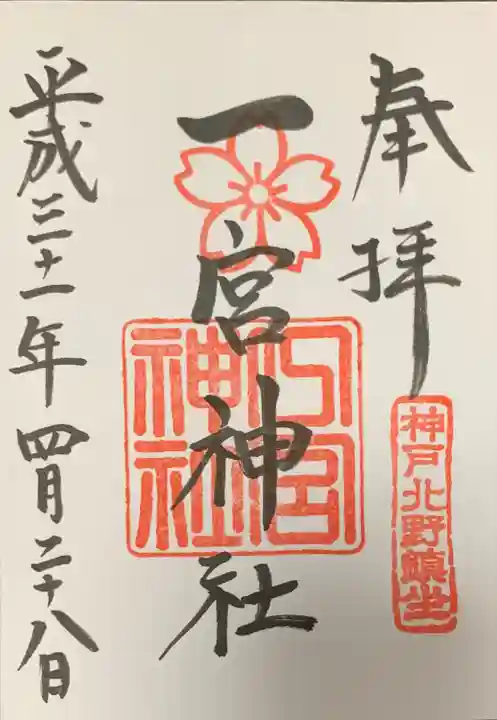 奉拝
神戸北野鎮坐
一宮神社
宮
神社
平成三十一年四月二十八日